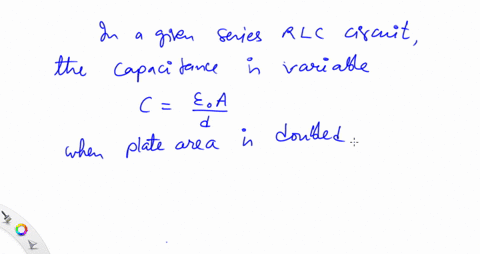 In a given series RLC circuit,
the capacitance is variable
C = ε₀A / d
when plate area is doubled